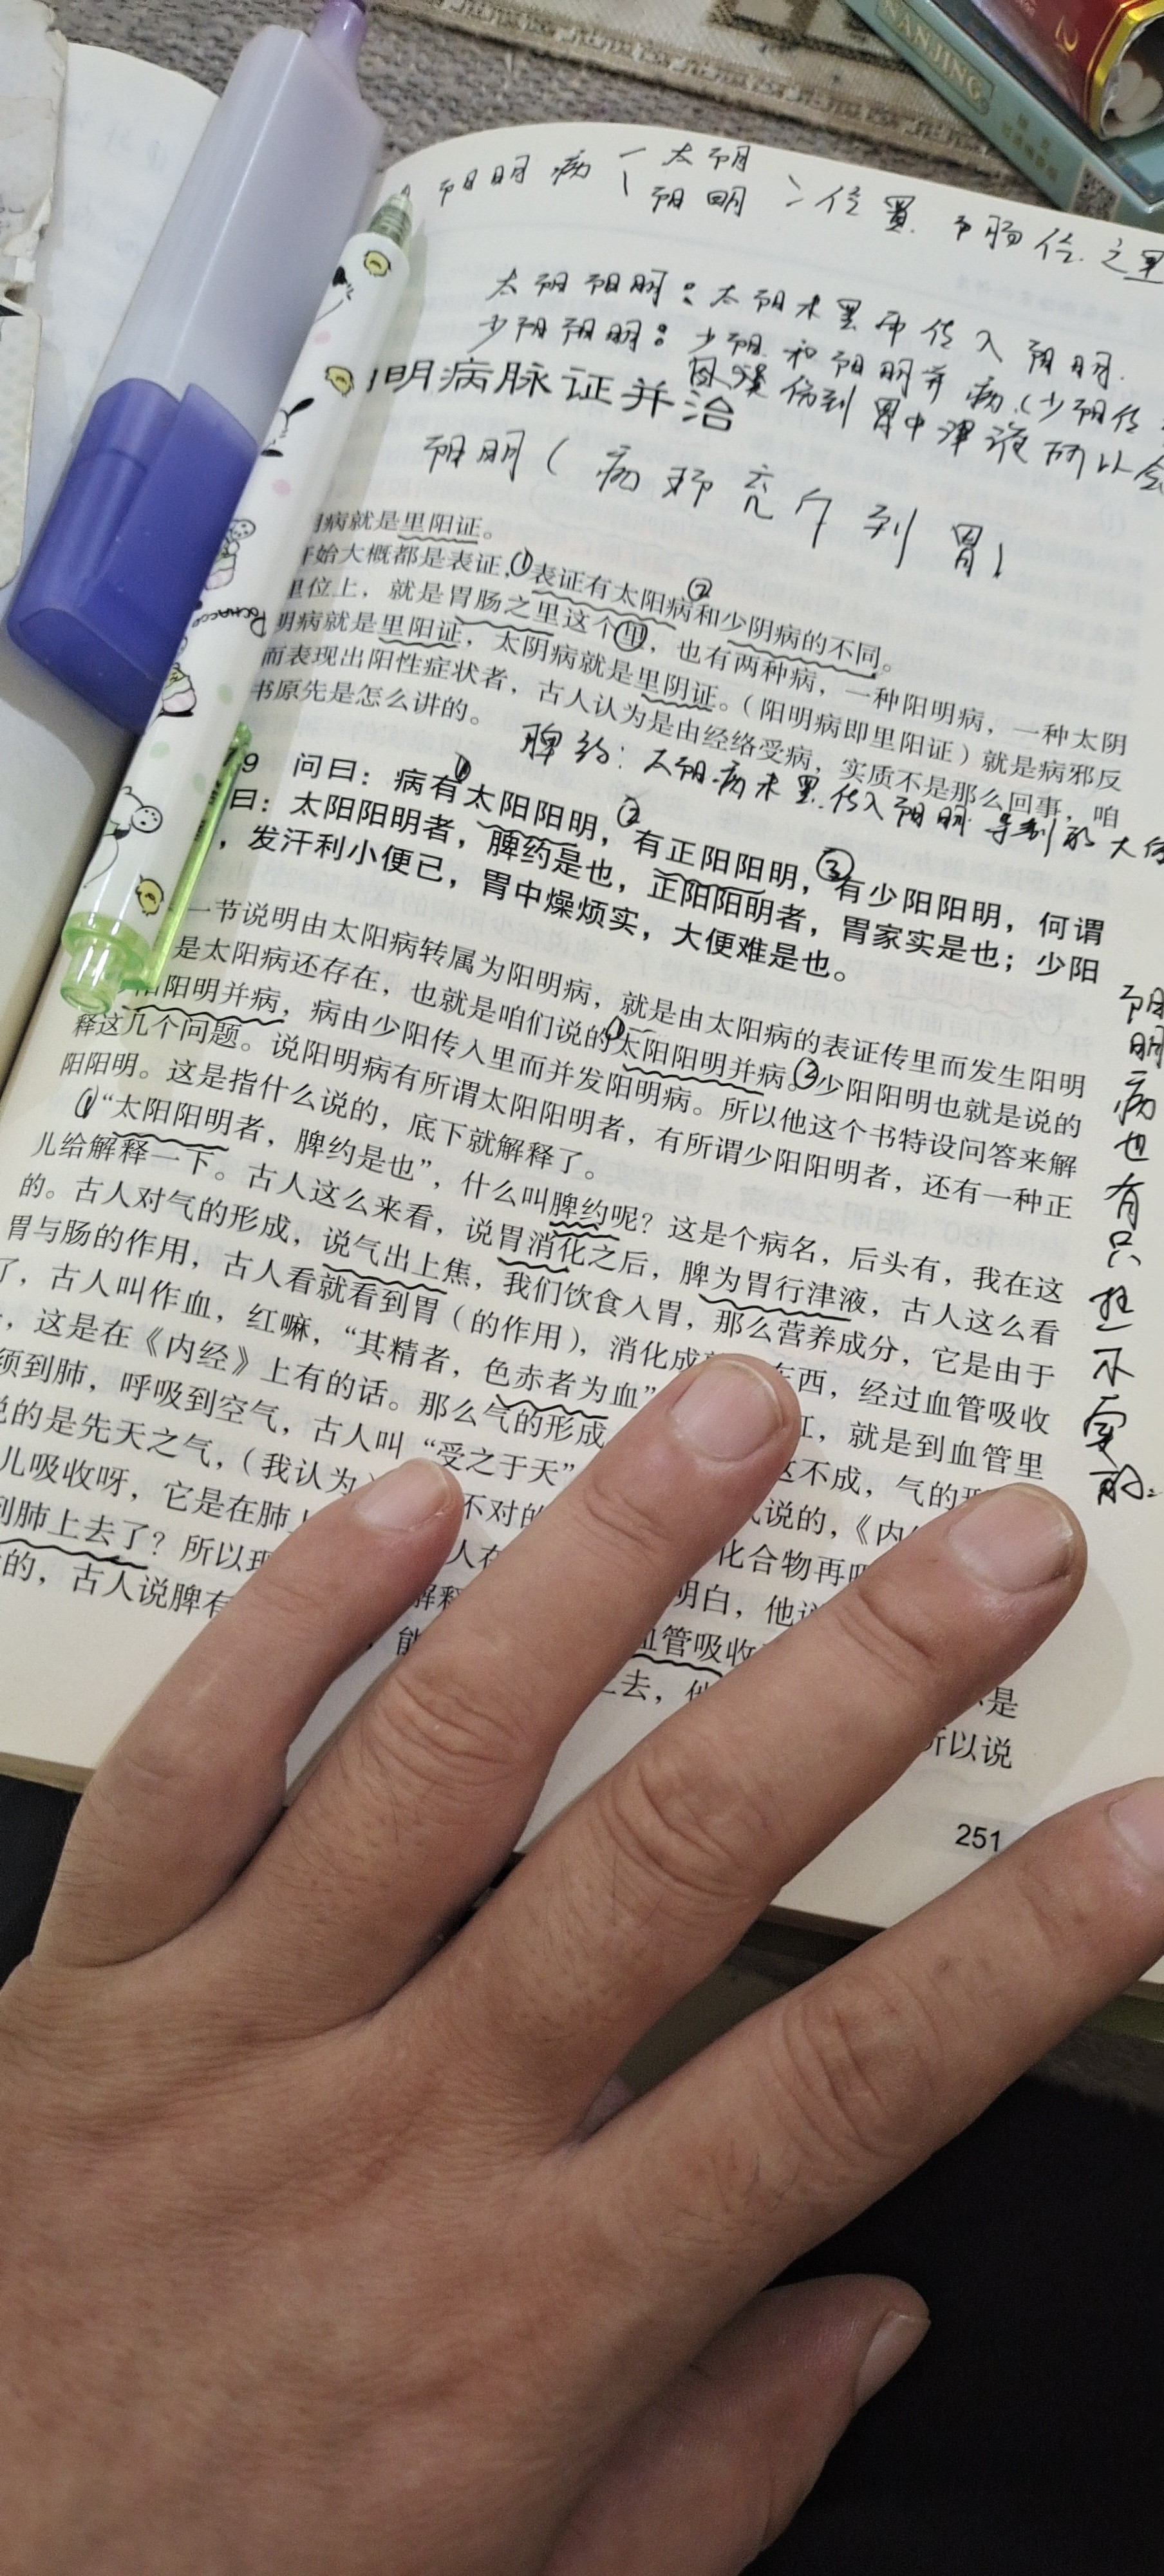 NANJING
阳明病 太阳
阳明 > 位置 胃肠位之里
太阳阳明：太阳未罢而传入阳明.
少阳阳明：少阳和阳明并病（少阳传
误伤到胃中津液所以会
明病脉证并治
阳明（病邪充斥到胃）
病就是里阳证。
始大概都是表证，①表证有太阳病和②少阴病的不同。
里位上，就是胃肠之里这个里，也有两种病，一种阳明病，一种太阴
明病就是里阳证，太阴病就是里阴证。（阳明病即里阳证）就是病邪反
而表现出阳性症状者，古人认为是由经络受病，实质不是那么回事，咱
书原先是怎么讲的。
脾约：太阳病未罢.传入阳明.导致的大
9 问曰：病有①太阳阳明，②有正阳阳明，③有少阳阳明，何谓
曰：太阳阳明者，脾约是也，正阳阳明者，胃家实是也；少阳
，发汗利小便已，胃中燥烦实，大便难是也。
一节说明由太阳病转属为阳明病，就是由太阳病的表证传里而发生阳明
是太阳病还存在，也就是咱们说的①太阳阳明并病。②少阳阳明也就是说的
阳阳明并病，病由少阳传入里而并发阳明病。所以他这个书特设问答来解
释这几个问题。说阳明病有所谓太阳阳明者，有所谓少阳阳明者，还有一种正
阳阳明。这是指什么说的，底下就解释了。
①“太阳阳明者，脾约是也”，什么叫脾约呢？这是个病名，后头有，我在这
儿给解释一下。古人这么来看，说胃消化之后，脾为胃行津液，古人这么看
的。古人对气的形成，说气出上焦，我们饮食入胃，那么营养成分，它是由于
胃与肠的作用，古人看就看到胃（的作用），消化成 东西，经过血管吸收
了，古人叫作血，红嘛，“其精者，色赤者为血” 红，就是到血管里
，这是在《内经》上有的话。那么气的形成 这不成，气的形
须到肺，呼吸到空气，古人叫“受之于天” 说的，《内
说的是先天之气，（我认为） 不对的 化合物再
儿吸收呀，它是在肺上 人在 明白，他
到肺上去了？所以现 解释 血管吸收
的，古人说脾有 ，能 上去，他 是
所以说
阳明病也有只热不实的。
251